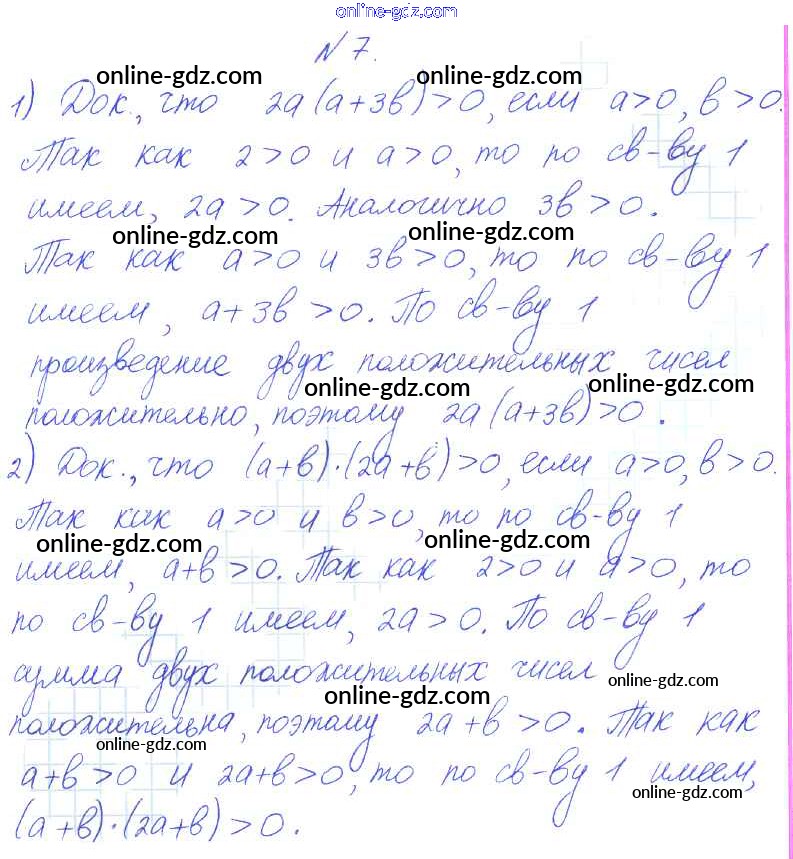 online-gdz.com
N 7.
online-gdz.com online-gdz.com
1) Док., что 2а(а+3в)>0, если а>0, в>0.
Так как 2>0 и а>0, то по св-ву 1
имеем, 2а>0. Аналогично 3в>0.
online-gdz.com online-gdz.com
Так как а>0 и 3в>0, то по св-ву 1
имеем, а+3в>0. По св-ву 1
произведение двух положительных чисел
online-gdz.com online-gdz.com
положительно, поэтому 2а(а+3в)>0.
2) Док., что (а+в)·(2а+в)>0, если а>0, в>0.
Так как а>0 и в>0, то по св-ву 1
online-gdz.com online-gdz.com
имеем, а+в>0. Так как 2>0 и а>0, то
по св-ву 1 имеем, 2а>0. По св-ву 1
сумма двух положительных чисел
online-gdz.com online-gdz.com
положительна, поэтому 2а+в>0. Так как
online-gdz.com
а+в>0 и 2а+в>0, то по св-ву 1 имеем,
online-gdz.com
(а+в)·(2а+в)>0.